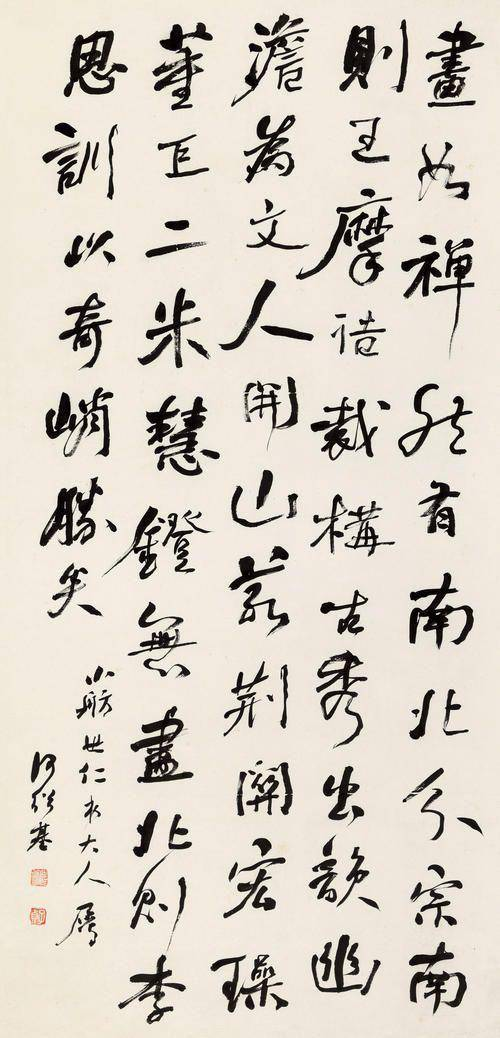 畫如禪然有南北分宗南
則王摩詰裁構古秀出韻幽
澹為文人開山若荆關宏璪
董巨二米慧鐙無盡北則李
思訓以奇峭勝矣
小舫世仁弟大人屬
何紹基